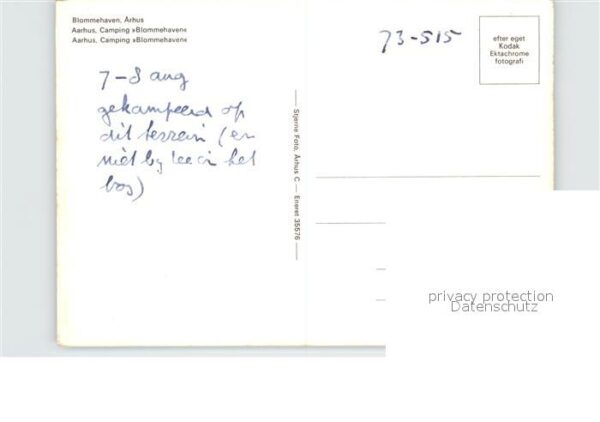 Blommehaven, Århus
Aarhus, Camping »Blommehaven«
Aarhus, Camping »Blommehaven«
7-8 aug
gekampeerd op
dit terrein (en
niet by zee in het
bos)
Stjerne Foto, Århus C — Eneret 35576
73-515
efter eget
Kodak
Ektachrome
fotografi
privacy protection
Datenschutz